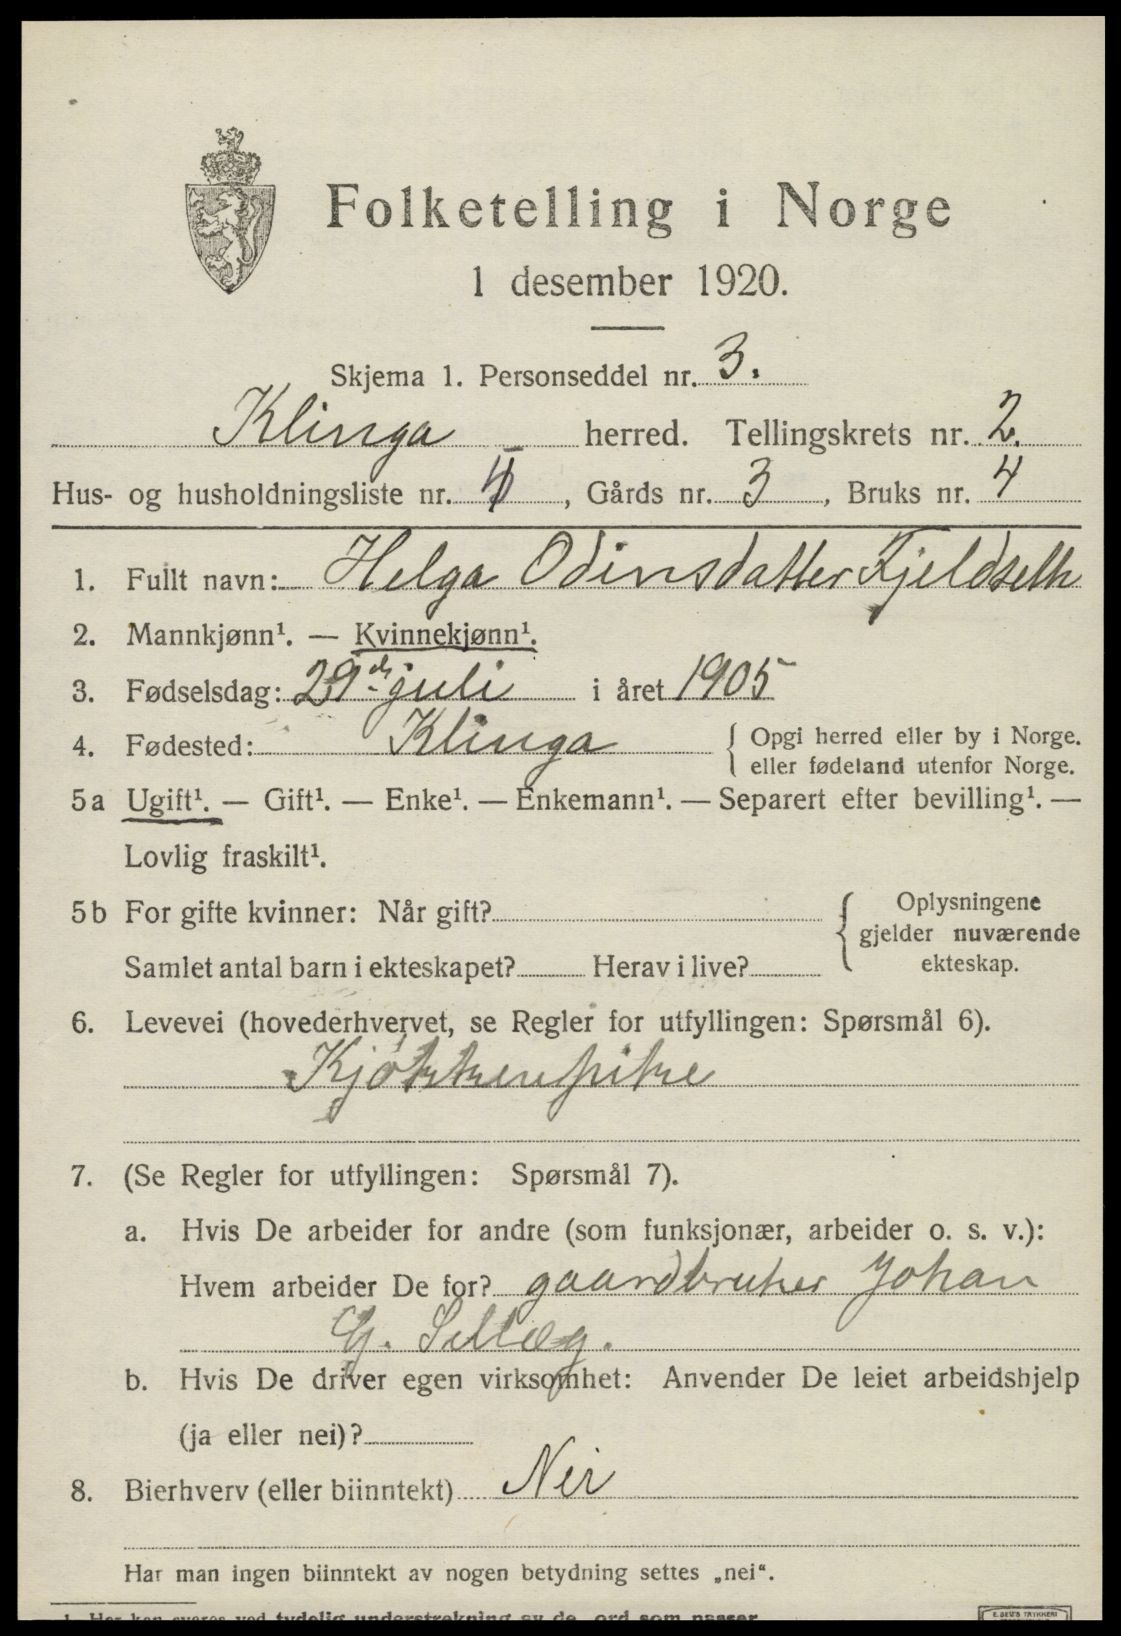 Folketelling i Norge
1 desember 1920.
Skjema 1. Personseddel nr. 3.
Klinga herred. Tellingskrets nr. 2.
Hus- og husholdningsliste nr. , Gårds nr. 3, Bruks nr. 4
1. Fullt navn: Helga Odinsdatter Fjeldseth
2. Mannkjønn¹. — Kvinnekjønn¹.
3. Fødselsdag: 29de juli i året 1905
4. Fødested: Klinga { Opgi herred eller by i Norge.
eller fødeland utenfor Norge.
5a Ugift¹. — Gift¹. — Enke¹. — Enkemann¹. — Separert efter bevilling¹. —
Lovlig fraskilt¹.
5b For gifte kvinner: Når gift? { Oplysningene
gjelder nuværende
Samlet antal barn i ekteskapet? Herav i live? ekteskap.
6. Levevei (hovederhvervet, se Regler for utfyllingen: Spørsmål 6).
Kjøkkenpike
7. (Se Regler for utfyllingen: Spørsmål 7).
a. Hvis De arbeider for andre (som funksjonær, arbeider o. s. v.):
Hvem arbeider De for? gaardbruker Johan
G. Sellæg.
b. Hvis De driver egen virksomhet: Anvender De leiet arbeidshjelp
(ja eller nei)?
8. Bierhverv (eller biinntekt) Nei
Har man ingen biinntekt av nogen betydning settes „nei“.
1. Her kan svares ved tydelig understrekning av de ord som passer.